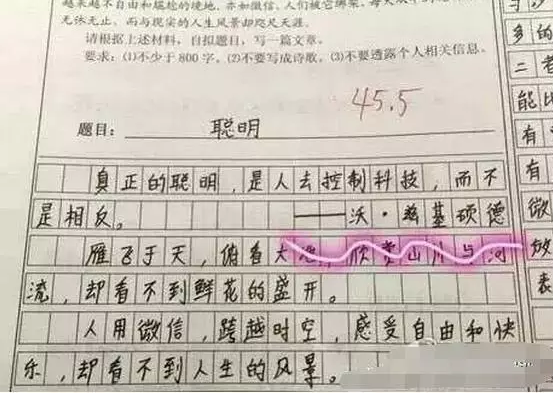 越来越不自由和尴尬的境地,亦如微信,人们被它绑架,每
无休无止,而与现实的人生风景却咫尺天涯。
请根据上述材料,自拟题目,写一篇文章。
要求:(1)不少于800字,(2)不要写成诗歌,(3)不要透露个人相关信息。
45.5
题目: 聪明
真正的聪明,是人去控制科技,而不
是相反。 ——沃·兹基硕德
雁飞于天,俯看大地,欣赏山川与河
流,却看不到鲜花的盛开。
人用微信,跨越时空,感受自由和快
乐,却看不到人生的风景。
多的
二
能比
有
有
微
妙
表